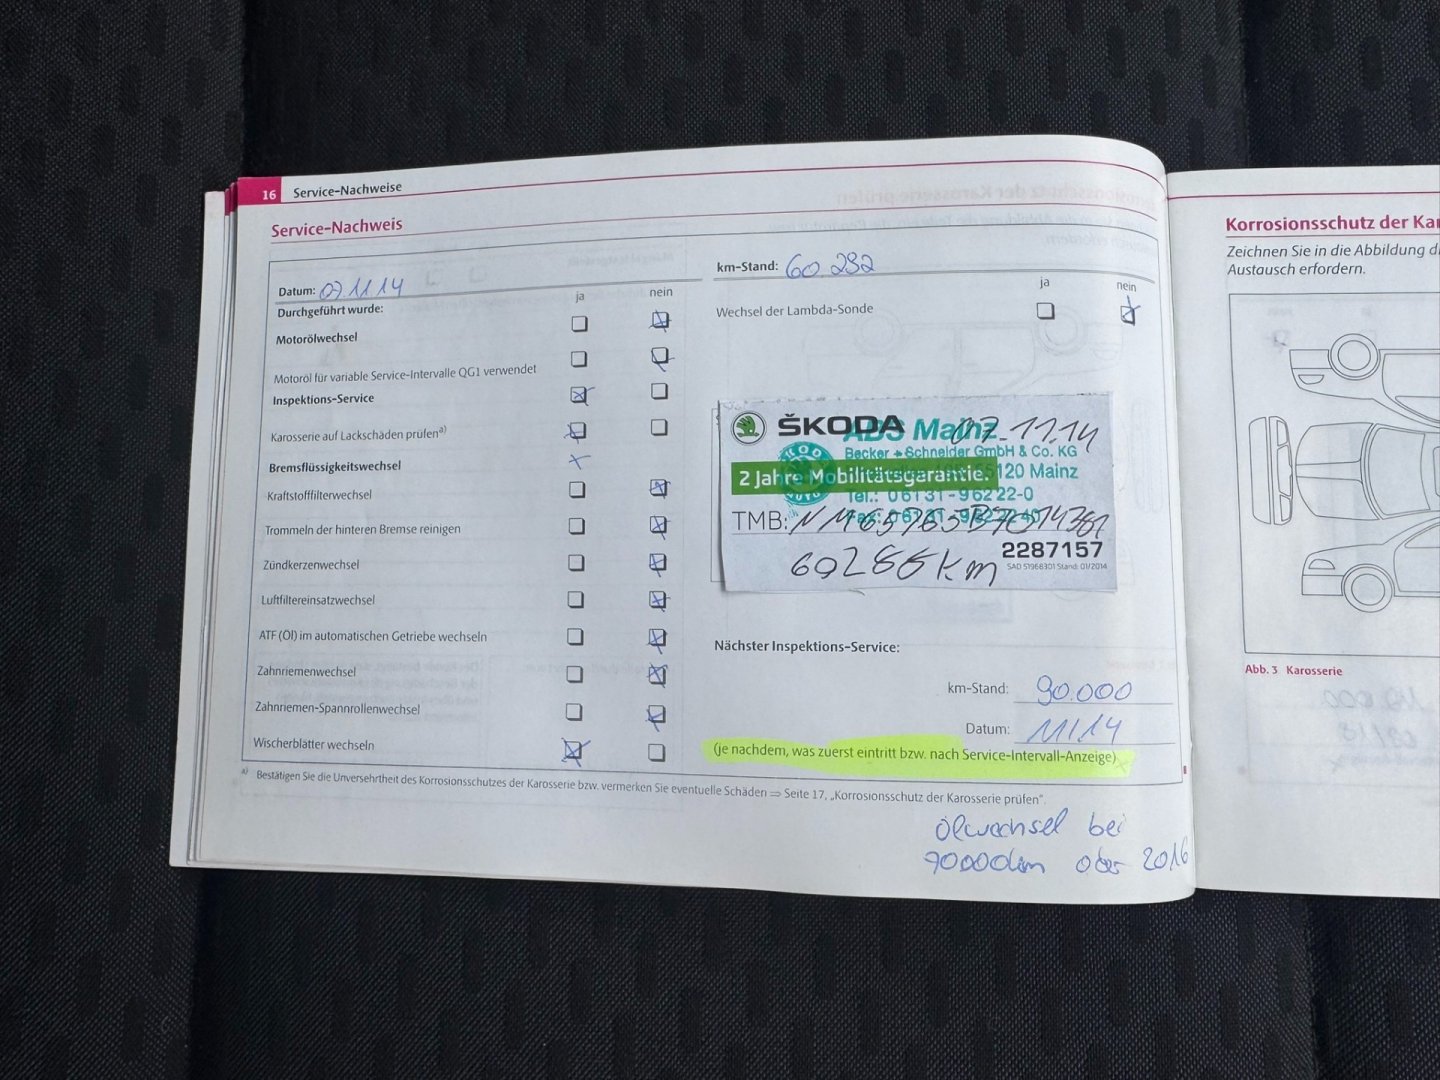 16 Service-Nachweise
Service-Nachweis
Datum: 07.11.14
km-Stand: 60.292
Durchgeführt wurde:
ja nein
ja nein
Motorölwechsel
Wechsel der Lambda-Sonde
Motoröl für variable Service-Intervalle QG1 verwendet
Inspektions-Service
Karosserie auf Lackschäden prüfen a)
Bremsflüssigkeitswechsel
Kraftstofffilterwechsel
Trommeln der hinteren Bremse reinigen
Zündkerzenwechsel
Luftfiltereinsatzwechsel
ATF (Öl) im automatischen Getriebe wechseln
Zahnriemenwechsel
Zahnriemen-Spannrollenwechsel
Wischerblätter wechseln
ŠKODA
ABS Mainz
07.11.14
Becker + Schneider GmbH & Co. KG
55120 Mainz
2 Jahre Mobilitätsgarantie.
Tel.: 06131-96222-0
TMB:
2287157
SAD 51966301 Stand: 01/2014
km
Nächster Inspektions-Service:
km-Stand: 90.000
Datum: 11/14
(je nachdem, was zuerst eintritt bzw. nach Service-Intervall-Anzeige)
a) Bestätigen Sie die Unversehrtheit des Korrosionsschutzes der Karosserie bzw. vermerken Sie eventuelle Schäden ⇒ Seite 17, „Korrosionsschutz der Karosserie prüfen“.
Ölwechsel bei
oder 2016
Korrosionsschutz der Kar
Zeichnen Sie in die Abbildung d
Austausch erfordern.
Abb. 3 Karosserie